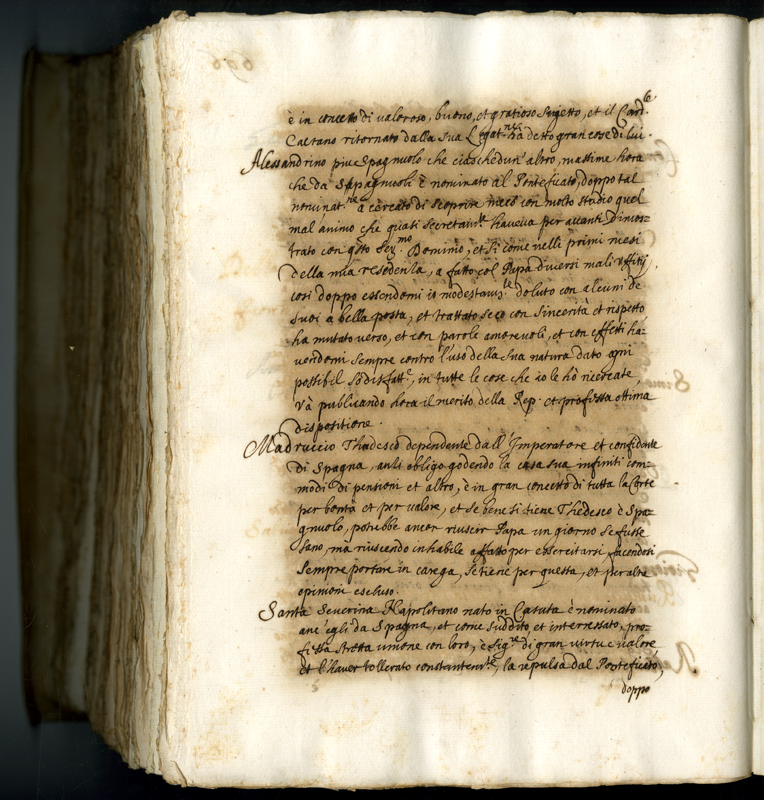 è in concetto di valoroso, buono, et gratioso sugetto, et il Card.le
Caetano ritornato dalla sua Legat.ne ha detto gran cose di lui.
Alessandrino più Spagnuolo che ciaschedun' altro, massime hora
che da Spagnuoli è nominato al Ponteficato, doppo tal
nominat.ne à cercato di scoprire meco con molto studio quel
mal animo che quasi secretam.te haveva per avanti dimos=
trato con q.sto Ser.mo Dominio, et si come nelli primi mesi
della mia residenza, a fatto col Papa diversi mali uffitij,
così doppo essendomi io modestam.te doluto con alcuni de
suoi a bella posta, et trattato seco con sincerità et rispetto,
ha mutato verso, et con parole amorevoli, et con effetti ha=
vendomi sempre contro l'uso della sua natura dato ogni
possibil sodisfatt.e, in tutte le cose che io le hò ricercate,
và publicando hora il merito della Rep. et professa ottima
dispositione.
Madruccio Thedesco dependente dall' Imperatore et confidente
di Spagna, anzi obligo godendo la casa sua infiniti com=
modi di pensioni et altro, è in gran concetto di tutta la Corte
per bontà et per valore, et se bene si tiene Thedesco è Spa=
gnuolo, potrebbe ancor riuscir Papa un giorno se fusse
sano, mà riuscendo inhabile affatto per essercitarsi, facendosi
sempre portare in carega, se tiene per questa, et per altre
opinioni escluso.
Santa Severina Napolitano nato in Caserta è nominato
anc' egli da Spagna, et come suddito et interessato, pro=
fessa stretta unione con loro, è Sig.re di gran virtù e valore,
et l'haver tollerato constantem.te, la repulsa dal Pontificato,
doppo